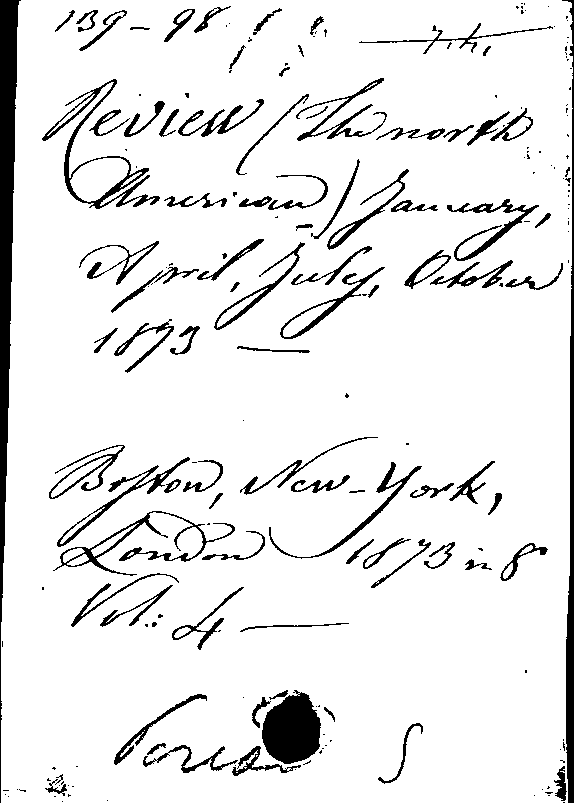 139-98
Review (The north
American) January,
April, July, October
1873 —
Boston, New-York,
London 1873 in 8°
Vol: 4 —
S